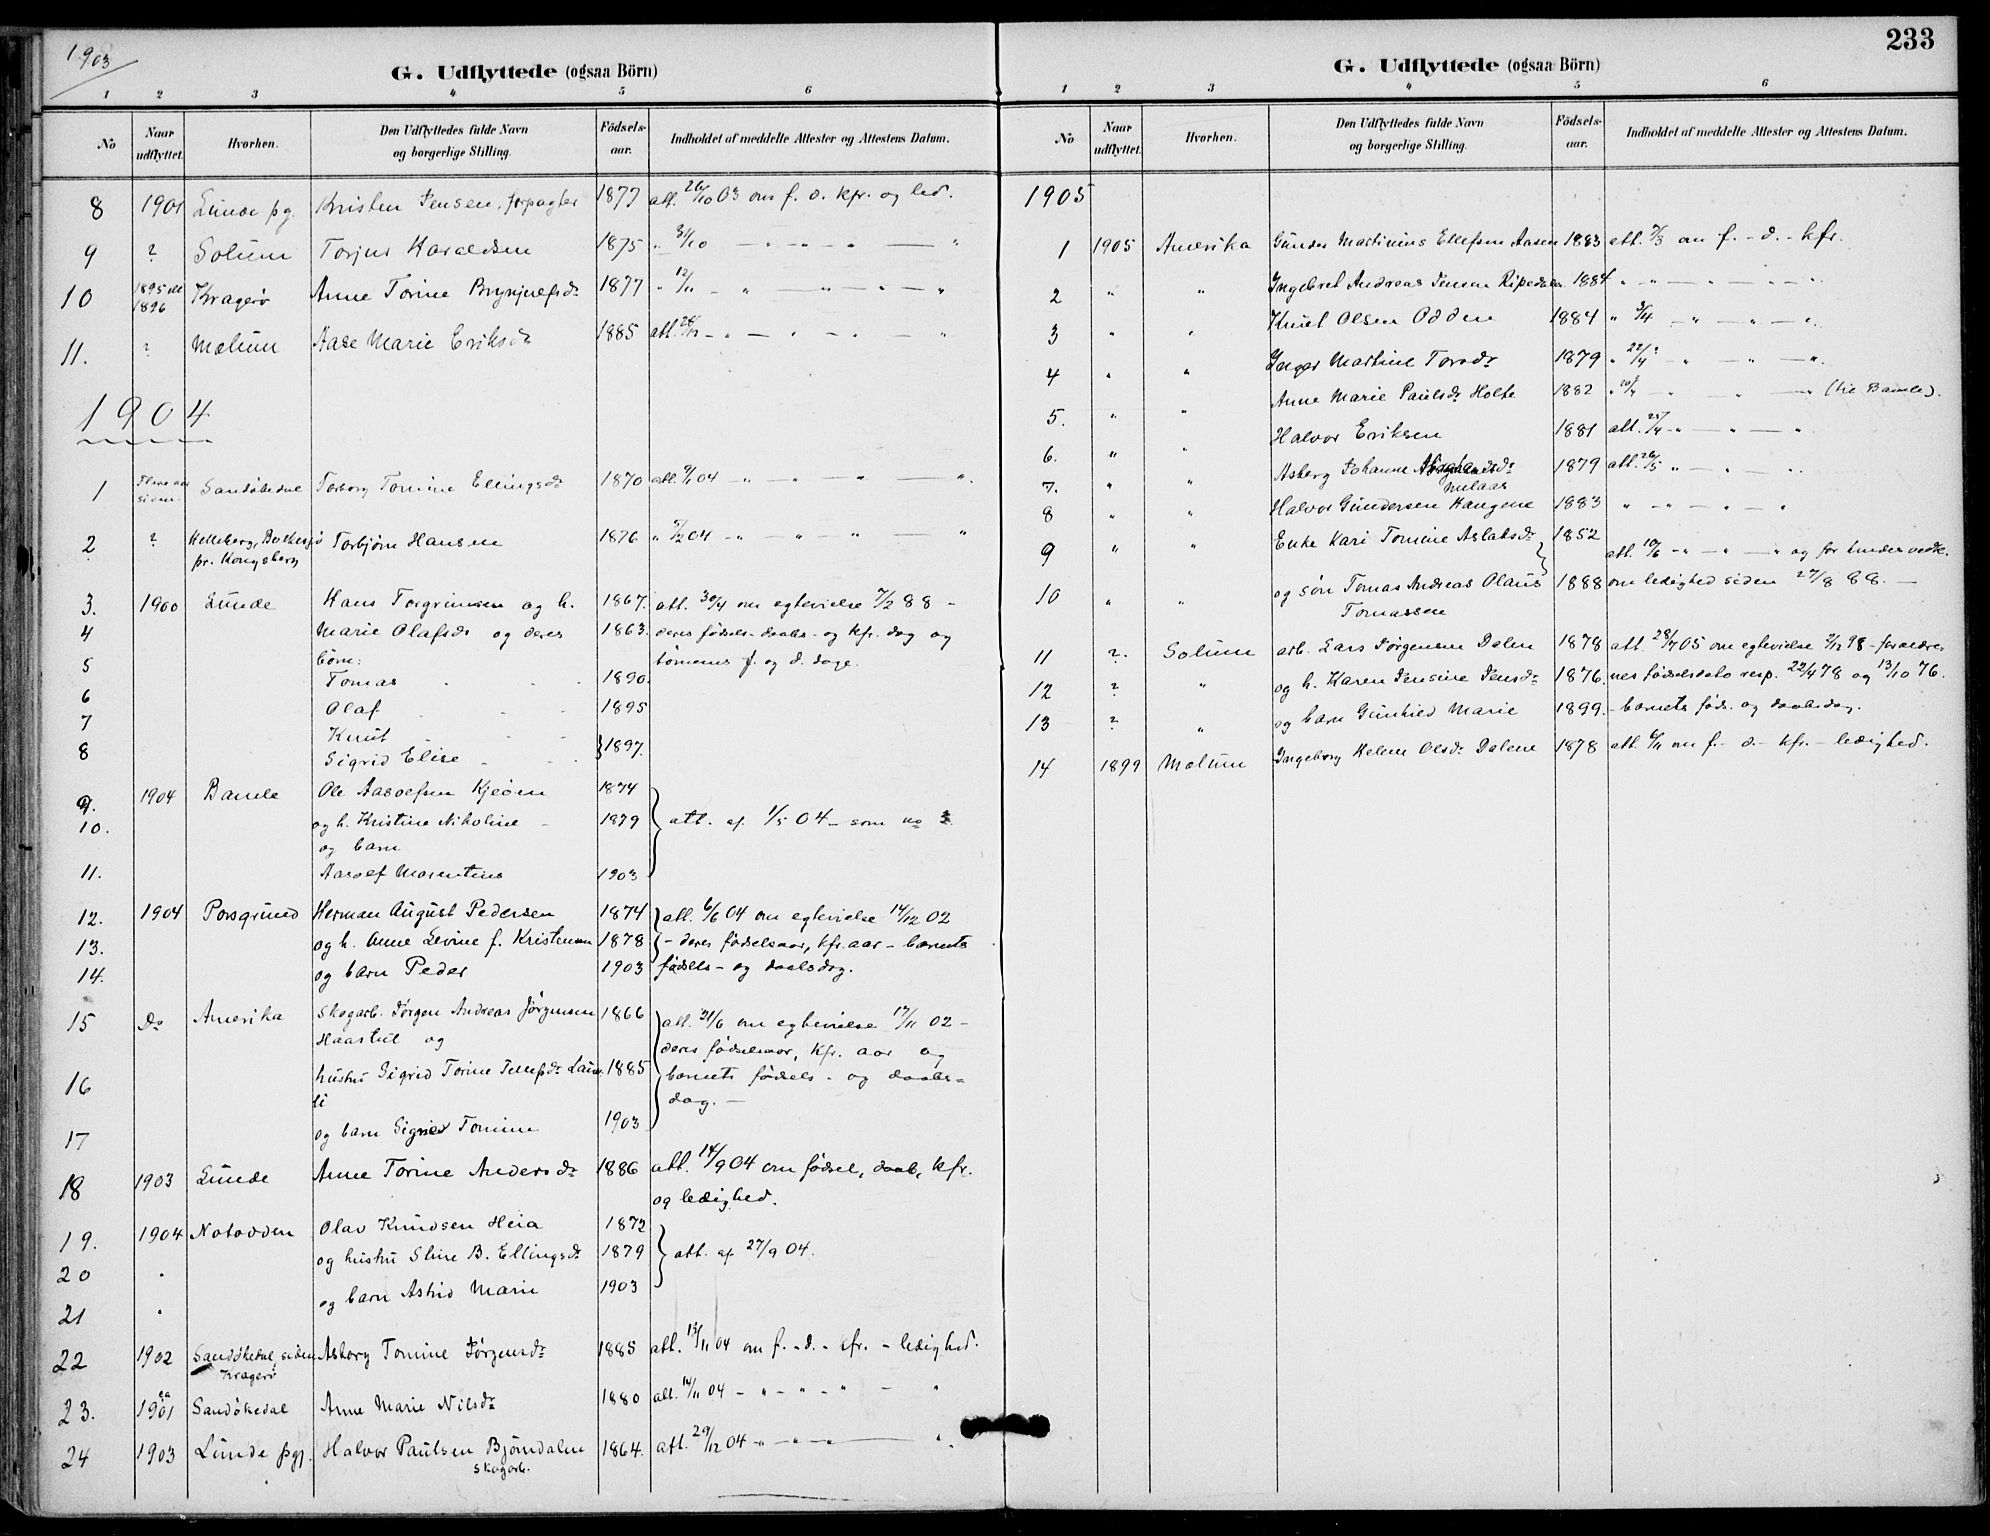 1903
G. Udflyttede (ogsaa Börn)
1 2 3 4 5 6
No Naar udflyttet. Hvorhen. Den Udflyttedes fulde Navn og borgerlige Stilling. Födsels-aar. Indholdet af meddelte Attester og Attestens Datum.
8 1901 Lunde pg. Kristen Jensen, forpagter 1877 att. 26/10 03 om f. d. kfr. og led.
9 ? Solum Torjus Haraldsen 1875 " 31/10 — " — " — " — "
10 1895 el 1896 Kragerø Anne Torine Brynjulfsdr 1877 " 12/11 — " — " — " — "
11. ? Molum Aase Marie Eriksdr 1885 att. 28/12 — " — " — " — "
1904
1 siden Sandøkedal Torborg Tomine Ellingsdr 1870 att. 9/1 04 — " — " — " — "
2 ? Helleberg, Bolkesjø pr. Kongsberg Torbjørn Hansen 1876 " 5/2 04 — " — " — " — "
3. 1900 Lunde Hans Torgrimsen og h. 1867. att. 30/4 om egtevielse 7/2 88 -
4 Marie Olafsdr og deres 1863. deres fødsels- daabs- og kfr. dag og
5 børn: børnenes f. og d. dage.
Tomas 1890.
6 Olaf 1895
7 Knut
8 Sigrid Elise } 1897.
9. 1904 Bamle Ole Aasolfsen Kjeøen 1874
10. og h. Kristine Nikoline - 1879 att. af 1/5 04 - som no 3.
og barn
11. Aasolf Marentius 1903
12. 1904 Porsgrund Herman August Pedersen 1874 att. 6/6 04 om egtevielse 14/12 02
13. og h. Anne Levine f. Kristensen 1878 - deres fødselsaar, kfr. aar - barnets
14. og barn Peder 1903 fødsels- og daabsdag.
15 Do Amerika Skogarb. Jørgen Andreas Jørgensen 1866 att. 21/6 om egtevielse 17/11 02 -
Haastul og deres fødselsaar, kfr. aar og
16 hustru Sigrid Torine 1885 barnets fødsels- og daabs-
li dag. —
17 og barn Sigrid Tomine 1903
18 1903 Lunde Anne Torine Andersdr 1886 att. 14/9 04 om fødsel, daab, kfr.
og ledighed.
19. 1904 Notodden Olav Knudsen Heia 1872
20 " og hustru Stine B. Ellingsdr 1879 att. af 27/9 04.
21 " og barn Astrid Marie 1903
22 1902 Sandøkedal, siden Kragerø Asborg Tomine Jørgensdr 1885 att. 13/11 04 om f. - d. - kfr. - ledighed.
23. ca 1901 Sandøkedal Anne Marie Nilsdr 1880 att. 14/11 04 — " — " — " — "
24 1903 Lunde pgj. Halvor Paulsen Bjørndalen 1864. att. 29/12 04 — " — " — " — "
skogarb.
233
G. Udflyttede (ogsaa Börn)
1 2 3 4 5 6
No Naar udflyttet. Hvorhen. Den Udflyttedes fulde Navn og borgerlige Stilling. Födsels-aar. Indholdet af meddelte Attester og Attestens Datum.
1905
1 1905 Amerika Gunder Martinius Ellefsen Aasen 1883 att. 7/3 om f. - d. - kfr.
2 " " Ingebret Andreas Jensen Ripedalen 1884 " " — " — " — "
3 " " Knut Olsen Odden 1884 " 3/4 — " — " — "
4 " " Inger Martine Torsdr 1879 " 22/4 — " — " — "
5. " " Anne Marie Paulsdr Holte 1882 " 10/4 — " — " — " (til Bamle).
6. " " Halvor Eriksen 1881 att. 25/4 — " — " — "
7. " " Asberg Johanne 1879 att. 26/5 " — " — "
8 " " Halvor Gundersen Haugene 1883 " — " — " — "
9 " " Enke Kari Tomine Aslaksdr 1852 att. 10/6 — " — " — " og for hendes vedk.
10 " " og søn Tomas Andreas Olaus 1888 om ledighed siden 27/8 88. —
Tomassen
11 ? Solum arb. Lars Jørgensen Dalen 1878 att. 28/7 05 om egtevielse 9/12 98 - foraldre-
12 ? " og h. Karen Jensine Jensdr 1876. nes fødselsdato resp. 22/4 78 og 13/10 76.
13 ? " og barn Gunhild Marie 1899. - barnets føds. og daabsdag.
14 1899 Molum Ingeborg Helene Olsdr Dalene 1878 att. 6/11 om f. - d. - kfr. - ledighed.